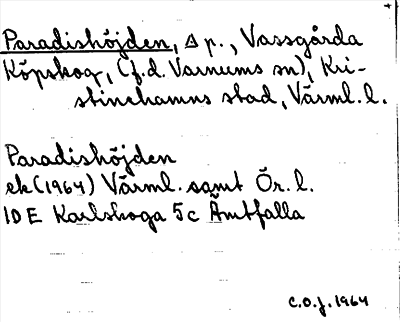 Paradishöjden, Δ p., Vassgårda
Köpskog, (f.d. Varnums sn), Kri-
stinehamns stad, Värml. l.
Paradishöjden
ek (1964) Värml. samt Ör. l.
10 E Karlskoga 5c Ämtfalla
C.O.J. 1964